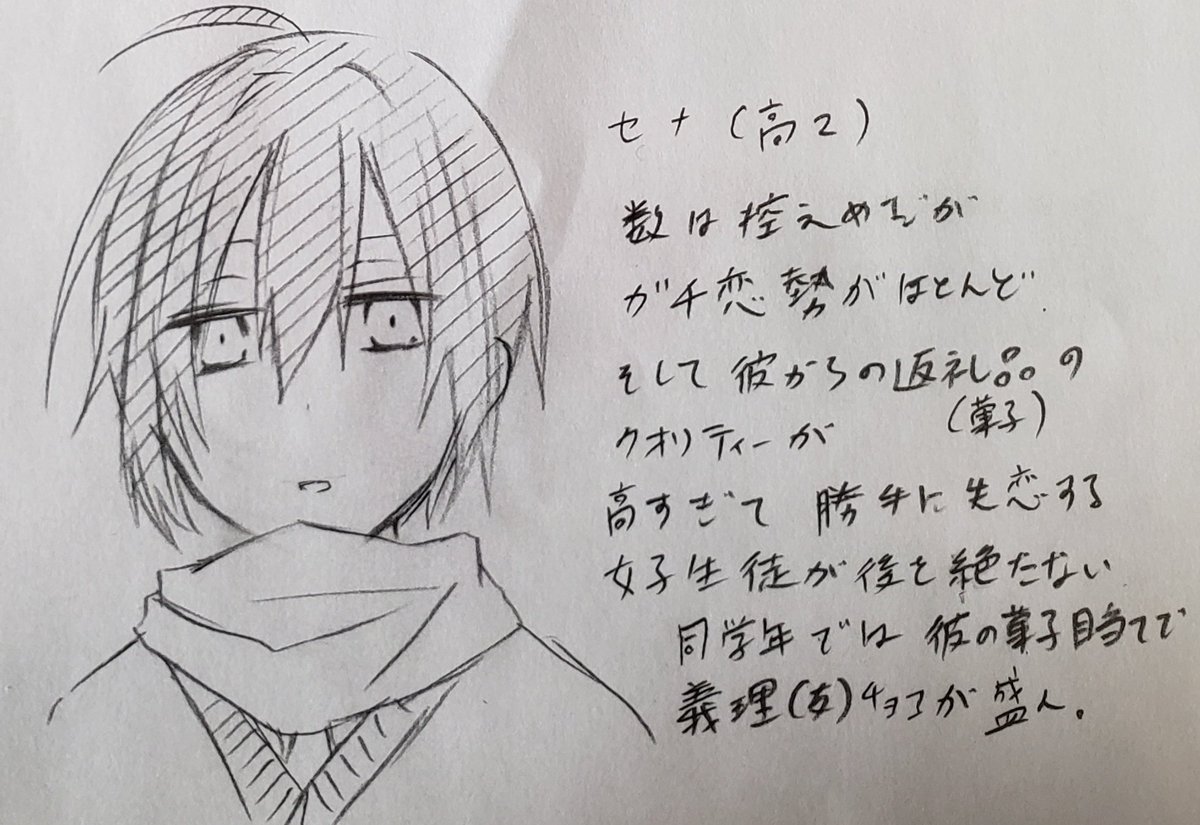 セナ(高2)
数は控えめだが
ガチ恋勢がほとんど
そして彼からの返礼品の
(菓子)
クオリティーが
高すぎて 勝手に失恋する
女子生徒が後を絶たない
同学年では彼の菓子目当てで
義理(友)チョコが盛ん。